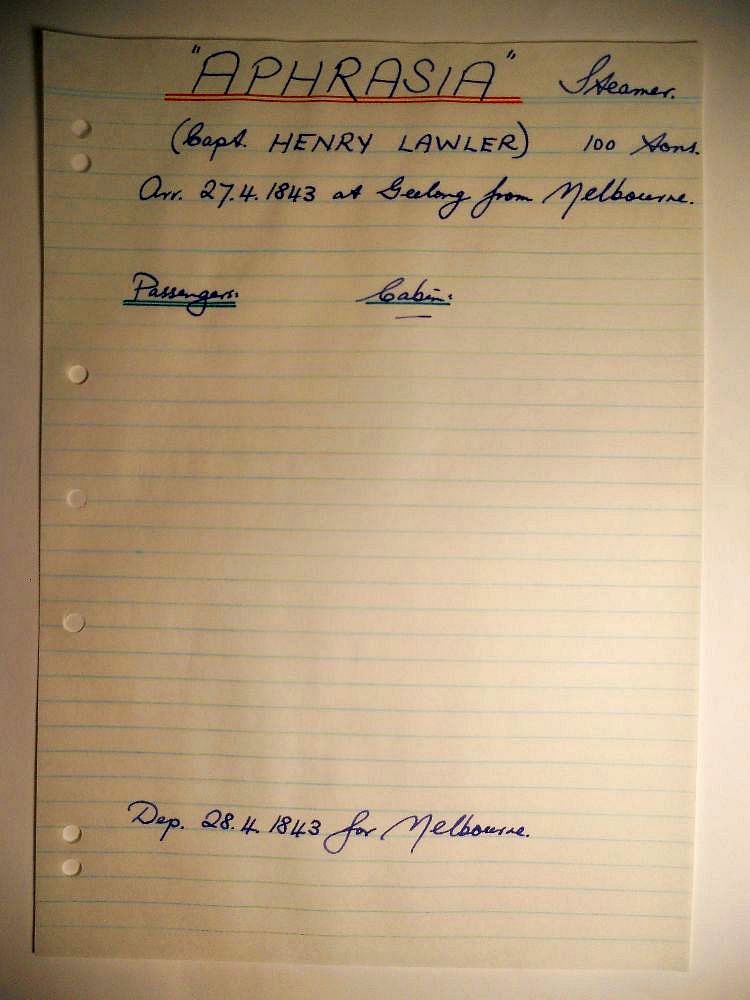 "APHRASIA" Steamer.
(Capt. HENRY LAWLER) 100 Tons.
Arr. 27.4.1843 at Geelong from Melbourne.
Passengers: Cabin:
Dep. 28.4.1843 for Melbourne.